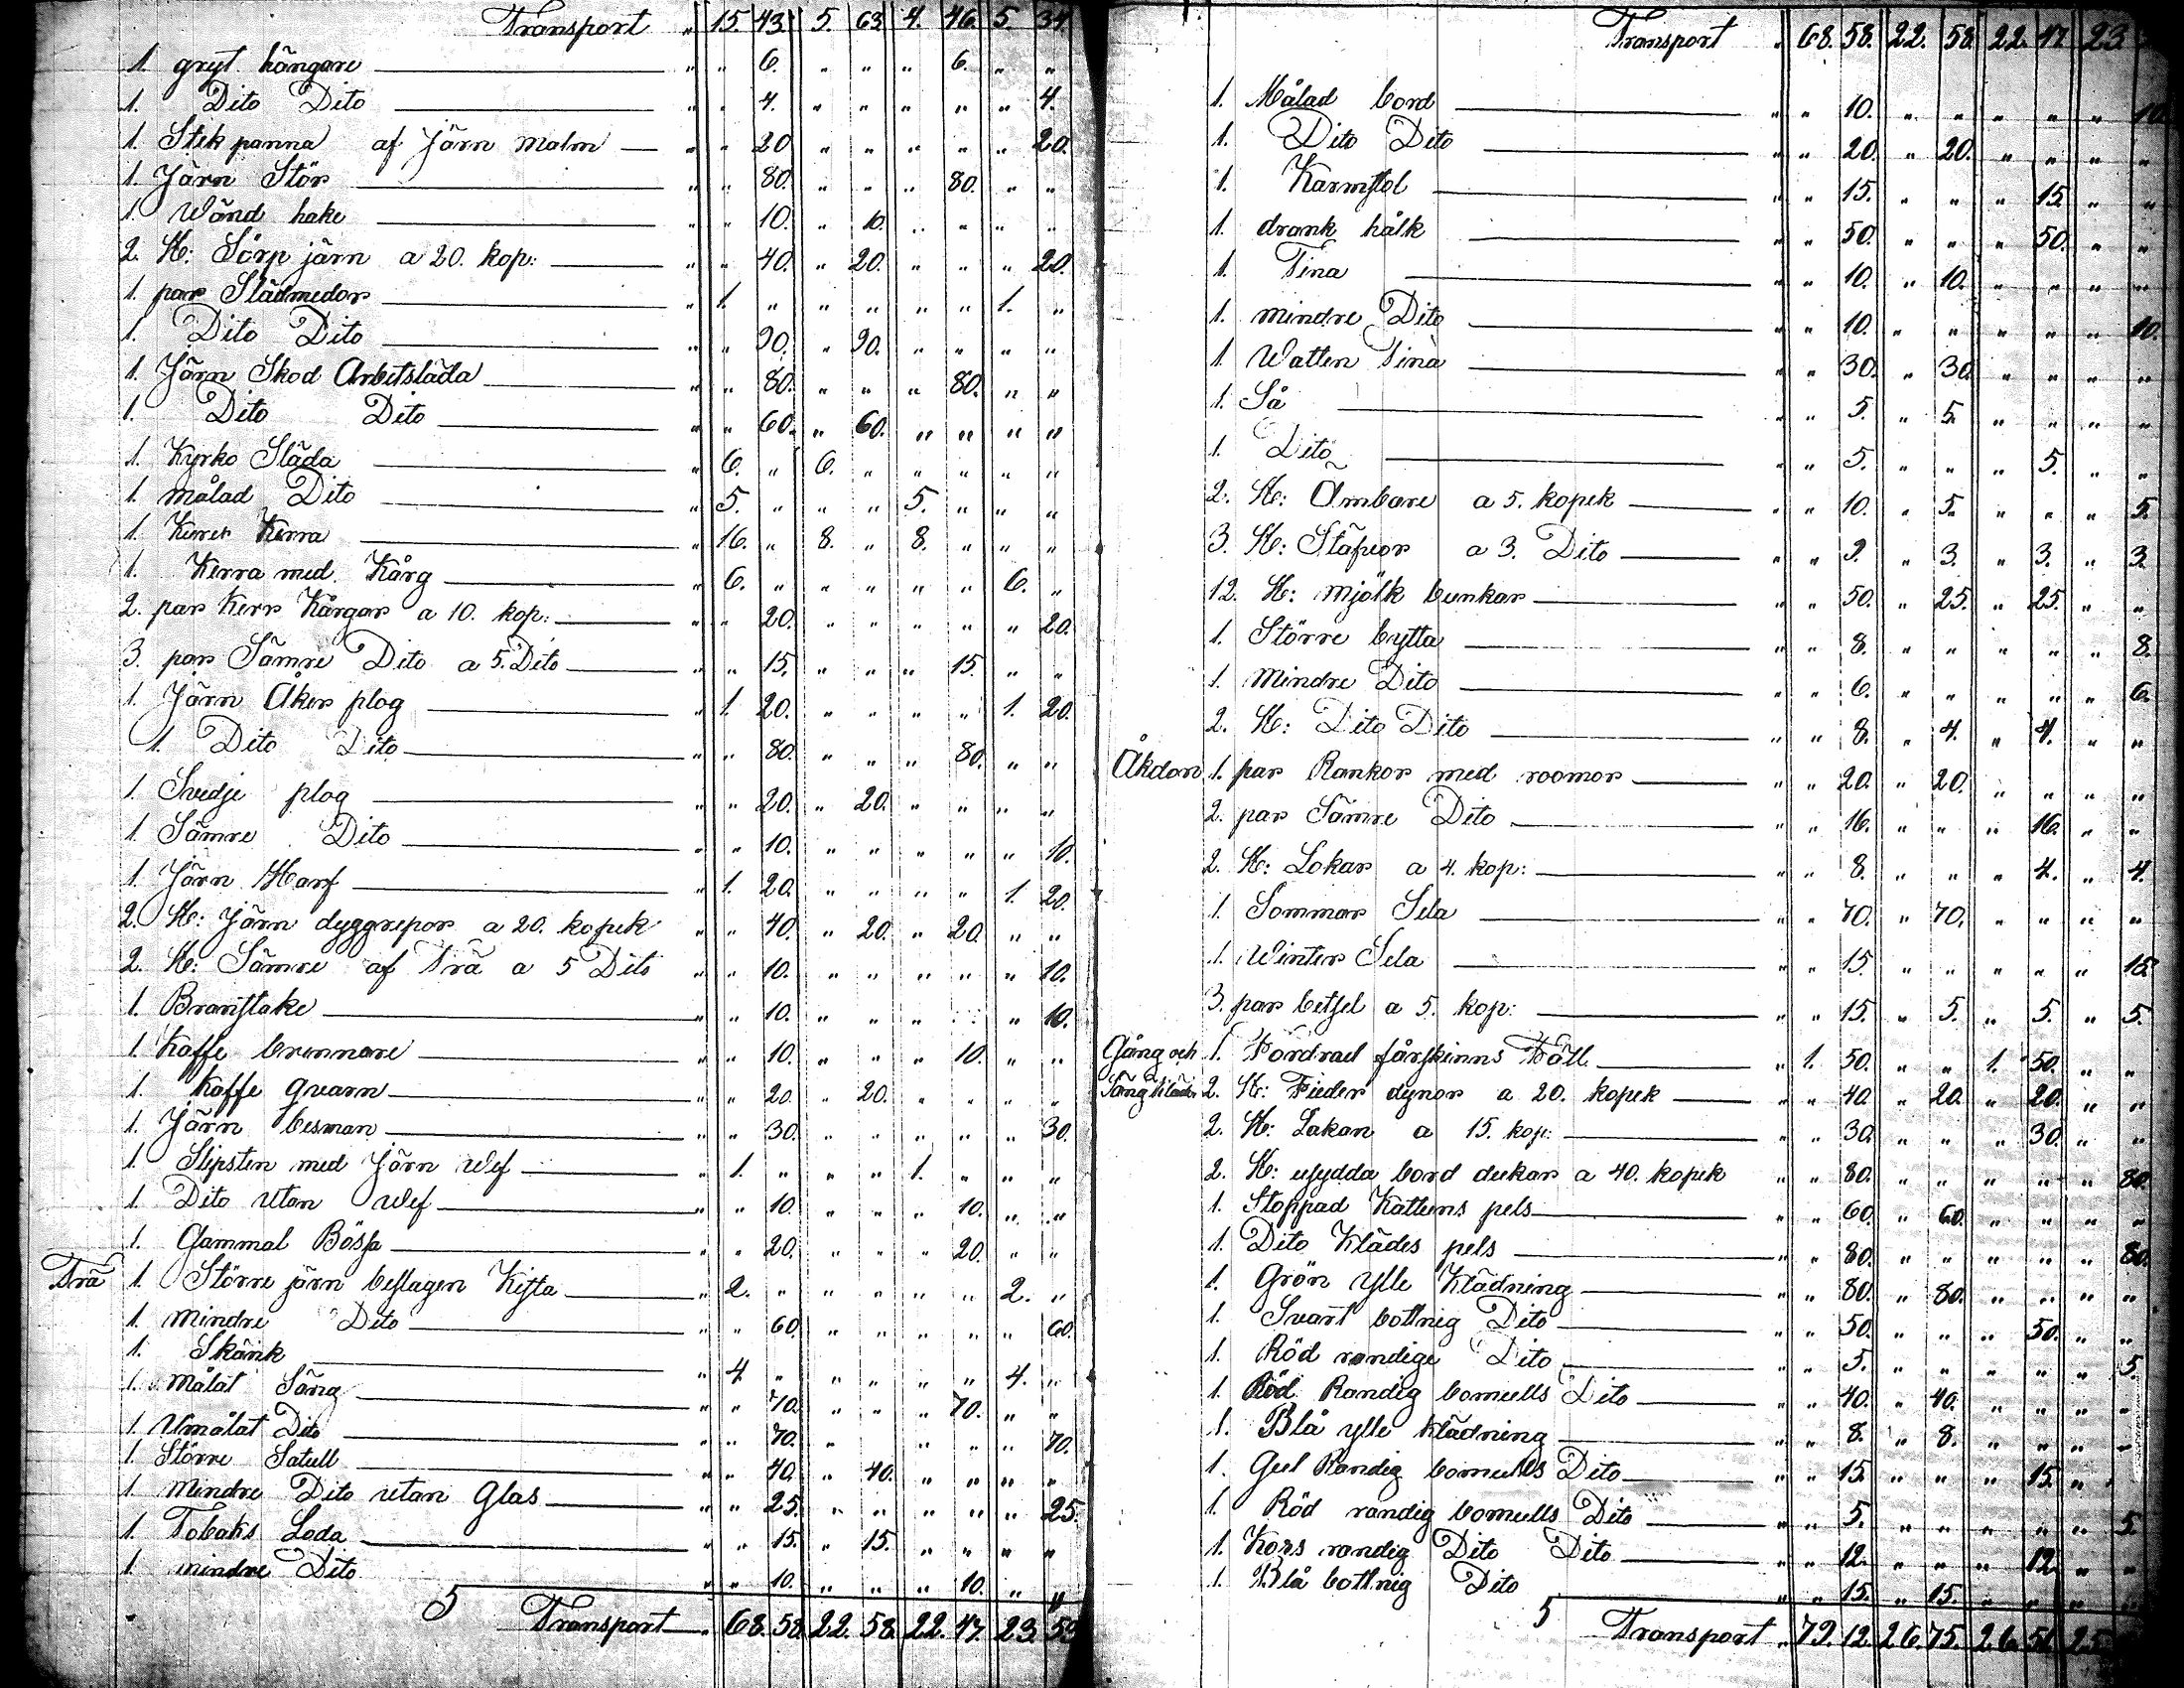 Transport " 15. 43. 5. 63 4. 46. 5. 34.
1. gryt hängare " " 6. " " " 6. " "
1. Dito Dito " " 4. " " " " " 4.
1. Stek panna af Järn malm " " 20 " " " " " 20.
1. Järn Stör " " 80. " " " 80. " "
1. Wänd hake " " 10. " 10. " " " "
2. St: Sörp järn a 20. kop: " " 40. " 20. " " " 20.
1. par Slädmedor " 1. " " " " " 1. "
1. Dito Dito " " 90. " 90. " " " "
1. Järn Skod Arbetsläda " " 80. " " " 80. " "
1. Dito Dito " " 60. " 60. " " " "
1. Kyrko Släda " 6. " 6. " " " " "
1. målad Dito " 5. " " " 5. " " "
1. Kärra " 16. " 8. " 8. " " "
1. Kerra med Kårg " 6. " " " " " 6. "
2. par Kerr Kårgar a 10. kop: " " 20. " " " " " 20.
3. par Sämre Dito a 5. Dito " " 15. " " " 15. " "
1. Järn Åker plog " 1. 20. " " " " 1. 20.
1. Dito Dito " " 80. " " " 80. " "
1. Svedje plog " " 20. " 20. " " " "
1. Sämre Dito " " 10. " " " " " 10.
1. Järn Harf " 1. 20. " " " " 1. 20.
2. St: Järn dyggrepor a 20. kopek " " 40. " 20. " 20. " "
2. St: Sämre af Trä a 5 Dito " " 10. " " " " " 10.
1. Branstake " " 10. " " " " " 10.
1. Kaffe brennare " " 10. " " " 10. " "
1. Kaffe qvarn " " 20. " 20. " " " "
1. Järn besman " " 30. " " " " " 30.
1. Slipsten med Järn Wef " 1. " " " 1. " " "
1. Dito utan Wef " " 10. " " " 10. " "
1. Gammal Bössa " " 20. " " " 20. " "
Trä 1. Större järn beslagen Kista " 2. " " " " " 2. "
1. Mindre Dito " " 60. " " " " " 60.
1. Skänk " 4 " " " " " 4. "
1. Målat Säng " " 70. " " " 70. " "
1. Umålat Dito " " 70. " " " " 70.
1. Större Satull " " 40. " 40. " " " "
1. Mindre Dito utan Glas " " 25. " " " " " 25.
1. Tobaks Loda " " 15. " 15. " " " "
1. mindre Dito " " 10. " " " 10. " "
5 Transport " 68. 58. 22. 58. 22. 47. 23. 53
Transport " 68. 58. 22. 58. 22. 47. 23.
1. Målad bord " " 10. " " " " " 10.
1. Dito Dito " " 20. " 20. " " " "
1. Karmstol " " 15. " " " 15. " "
1. drank hålk " " 50. " " " 50. " "
1. Tina " " 10. " 10. " " " "
1. mindre Dito " " 10. " " " " " 10.
1. Watten Tina " " 30. " 30. " " " "
1. Så " " 5. " 5. " " " "
1. Dito " " 5. " " " 5. " "
2. St: Ämbare a 5. kopek " " 10. " 5. " " " 5.
3. St: Stäfvor a 3. Dito " " 9. " 3. " 3. " 3.
12. St: Mjölk bunkar " " 50. " 25. " 25. " "
1. Större bytta " " 8. " " " " " 8.
1. Mindre Dito " " 6. " " " " " 6.
2. St: Dito Dito " " 8. " 4. " 4. " "
Åkdon 1. par Rankor med roomor " " 20. " 20. " " " "
2. par Sämre Dito " " 16. " " " 16. " "
2. St: Lokar a 4. kop: " " 8. " " " 4. " 4.
1. Sommar Sela " " 70. " 70. " " " "
1. Winter Sela " " 15. " " " " " 15.
3. par betsel a 5. kop: " " 15. " 5. " 5. " 5.
Gång och 1. Fordrad fårskinns Fäll " 1. 50. " " 1. 50. " "
Säng kläder 2. St: Fieder dynor a 20. kopek " " 40. " 20. " 20. " "
2. St: Lakan a 15. kop: " " 30. " " " 30. " "
2. St: usydda bord dukar a 40. kopek " " 80. " " " " " 80.
1. Stoppad Kattuns pels " " 60. " 60. " " " "
1. Dito Klädes pels " " 80. " " " " " 80.
1. Grön ylle Klädning " " 80. " 80. " " " "
1. Svart bottnig Dito " " 50. " " " 50. " "
1. Röd randige Dito " " 5. " " " " " 5.
1. Röd Randig bomulls Dito " " 40. " 40. " " " "
1. Blå ylle klädning " " 8. " 8. " " " "
1. Gul Randig bomulls Dito " " 15. " " " 15. " "
1. Röd randig bomulls Dito " " 5. " " " " " 5.
1. Kors randig Dito Dito " " 12. " " " 12. " "
1. Blå bottnig Dito " " 15. " 15. " " " "
5 Transport " 79. 12. 26. 75. 26. 56. 25.